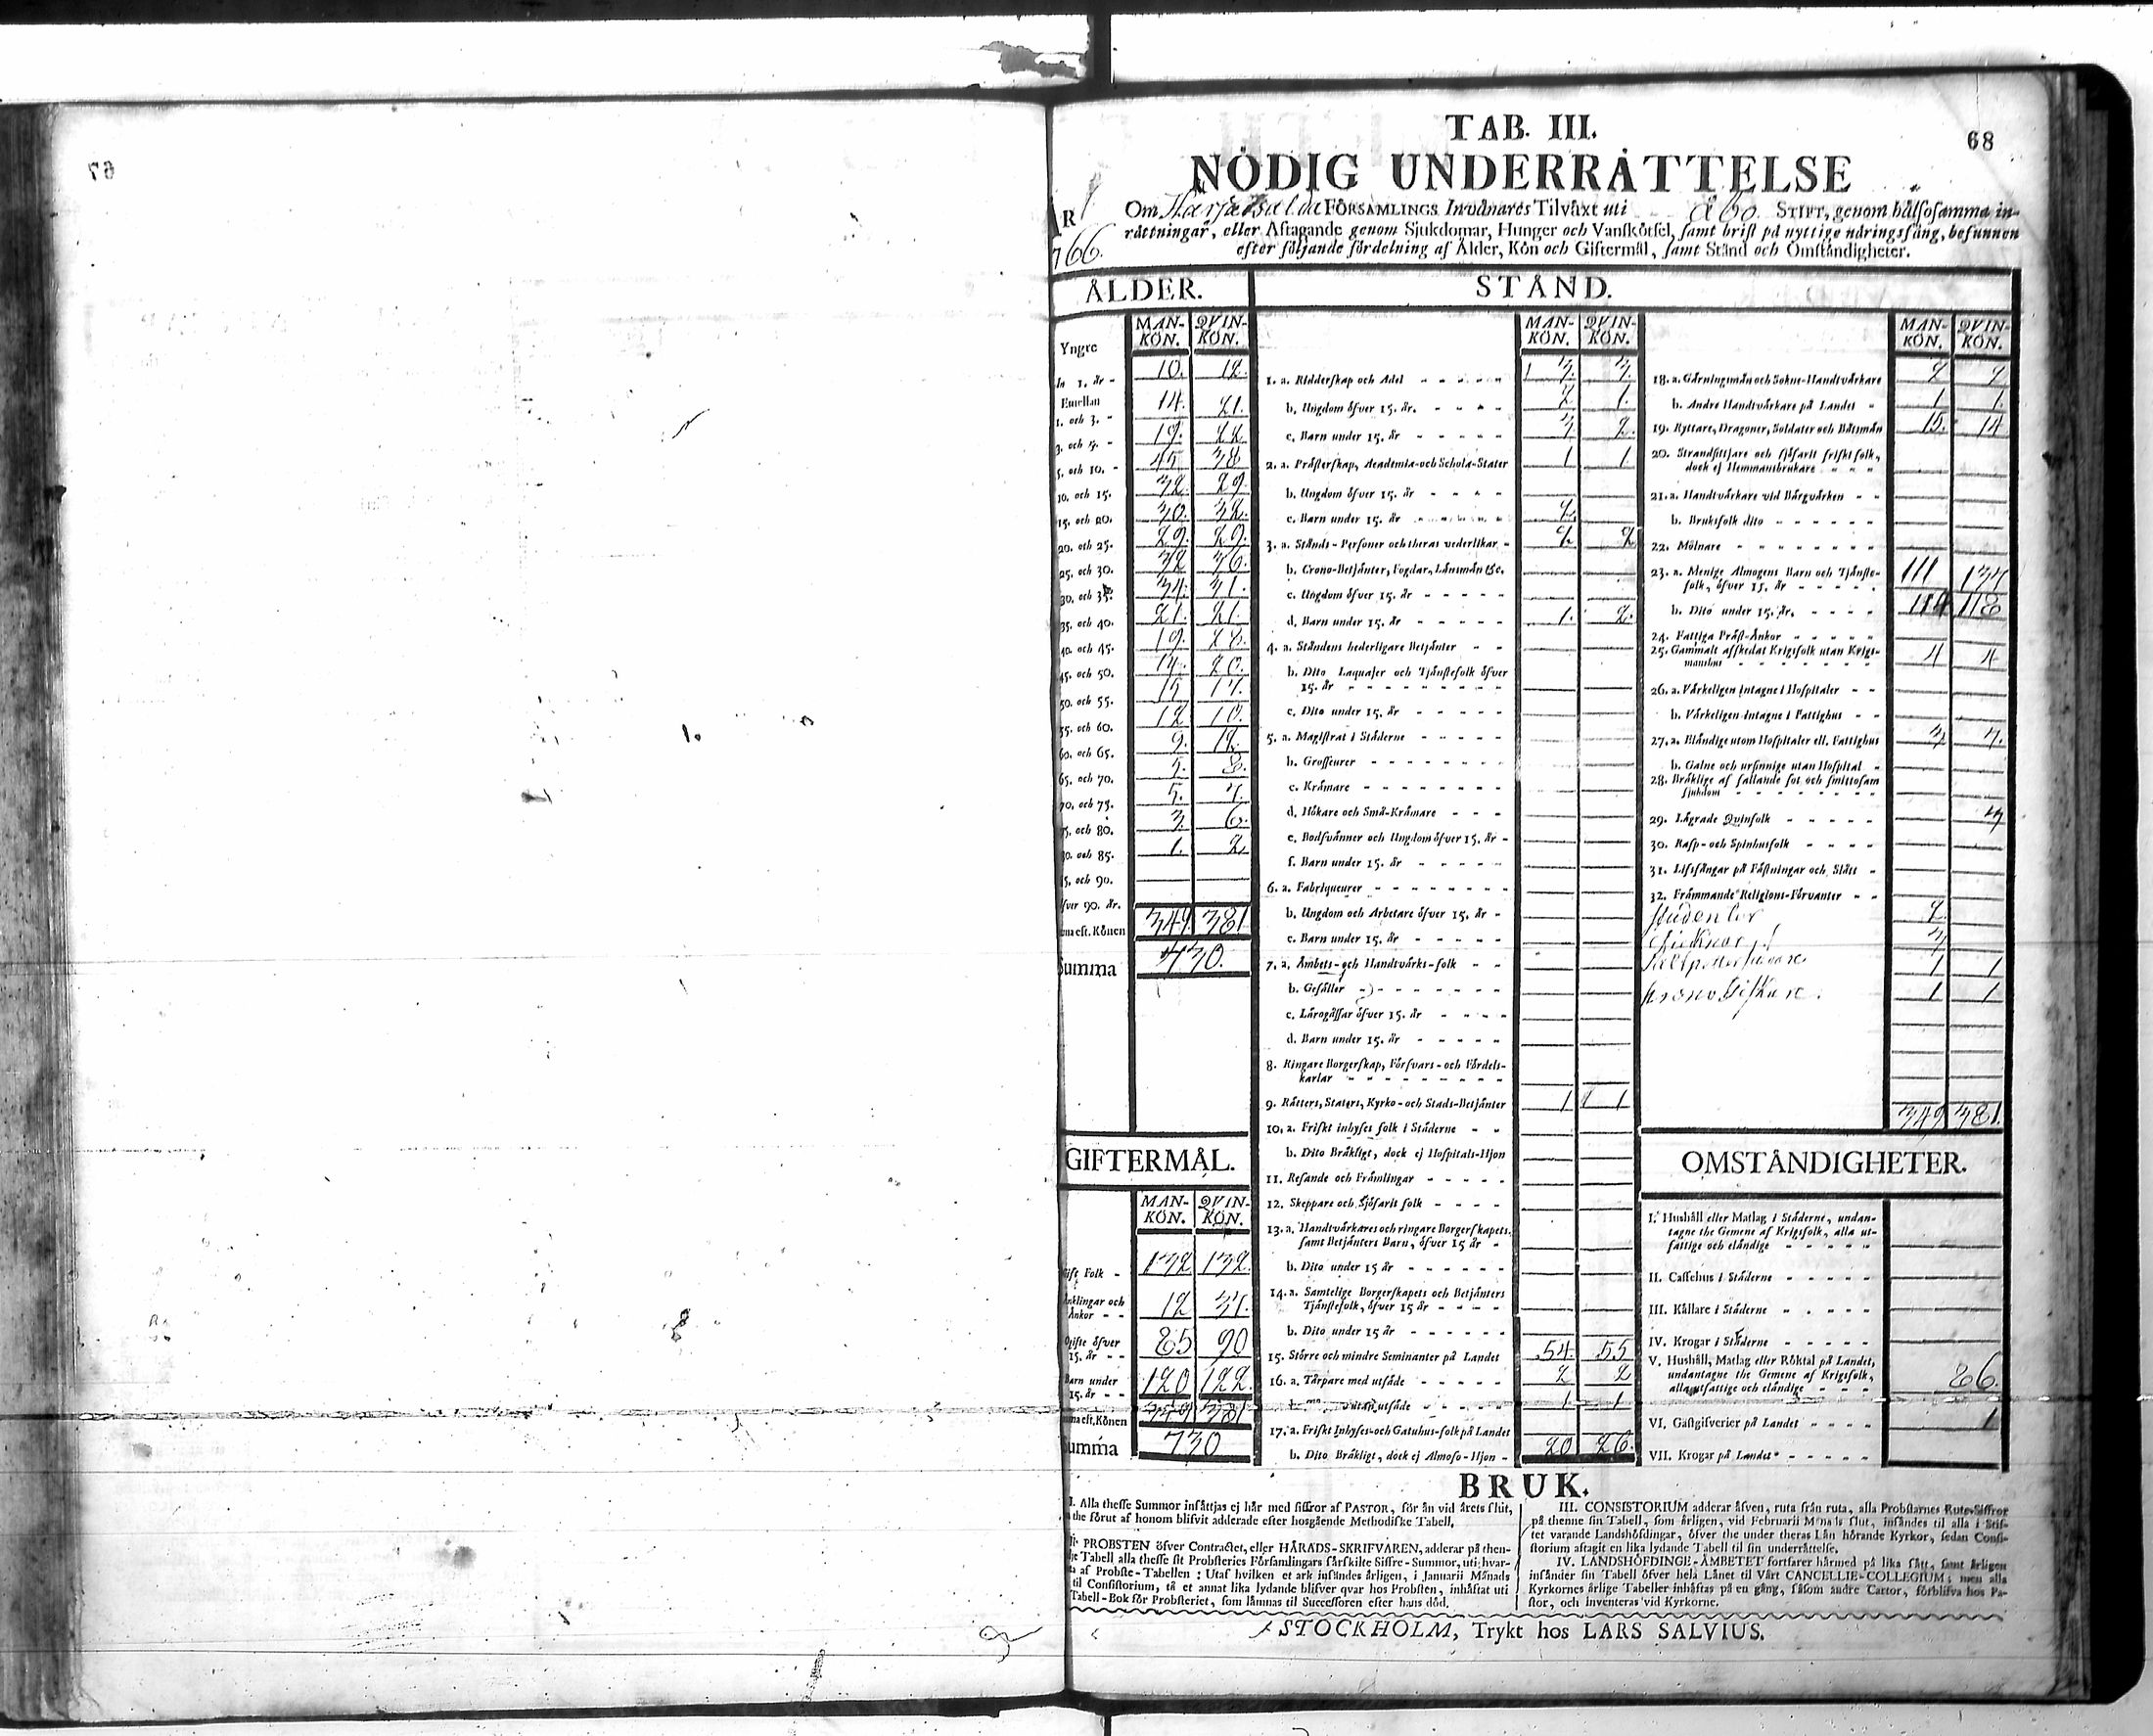 67
68
TAB. III.
NÖDIG UNDERRÄTTELSE
ÅR 1766.
Om FÖRSAMLINGS Invånares Tilväxt uti Åbo STIFT, genom hälsosamma in-
rättningar, eller Aftagande genom Sjukdomar, Hunger och Vanskötsel, samt brist på nyttige näringsfång, befunnen
efter följande fördelning af Ålder, Kön och Giftermål, samt Stånd och Omständigheter.
ÅLDER.
MAN-KÖN. QVIN-KÖN.
Yngre
än 1. år - 10. 12.
Emellan
1. och 3. - 14. 21.
3. och 5. - 19. 22
5. och 10. - 45 38
10. och 15. 32. 29.
15. och 20. 30. 32.
20. och 25. 29. 29.
25. och 30. 32 36.
30. och 35. 34. 31.
35. och 40. 21. 21.
40. och 45. 19.
45. och 50. 20.
50. och 55. 15
55. och 60. 12 10.
60. och 65. 9. 12.
65. och 70. 8.
70. och 75. 5.
75. och 80. 3. 6.
80. och 85. 1. 2.
85. och 90.
öfver 90. år.
Summa eft. Könen 349. 381
Summa 730.
GIFTERMÅL.
MAN-KÖN. QVIN-KÖN.
Gift Folk - 132 132.
Änklingar och
Änkor - - 12 37.
Ogifte öfver
15. år - - 85 90
Barn under
15. år - - 120 122.
Summa eft. Könen 349 381
Summa 730
STÅND.
MAN-KÖN. QVIN-KÖN.
1. a. Ridderskap och Adel - - - - - 3. 3.
b. Ungdom öfver 15. år. - - - - 2 1.
c. Barn under 15. år - - - - - 3. 2.
2. a. Prästerskap, Academia-och Schola-Stater 1 1
b. Ungdom öfver 15. år - - - -
c. Barn under 15. år - - - - - 2
3. a. Stånds-Personer och theras vederlikar - 2 2
b. Crono-Betjänter, Fogdar, Länsmän &c.
c. Ungdom öfver 15. år - - - - -
d. Barn under 15. år - - - - - 1. 2.
4. a. Ståndens hederligare Betjänter - -
b. Dito Laquajer och Tjänstefolk öfver
15. år - - - - - - - -
c. Dito under 15. år - - - - -
5. a. Magistrat i Städerne - - - - -
b. Grosseurer - - - - - - - -
c. Krämare - - - - - - - -
d. Hökare och Små-Krämare - - -
e. Bodsvänner och Ungdom öfver 15. år -
f. Barn under 15. år - - - - -
6. a. Fabriqueurer - - - - - - - -
b. Ungdom och Arbetare öfver 15. år -
c. Barn under 15. år - - - - -
7. a. Ämbets-och Handtvärks-folk - -
b. Gesäller - - - - - - - -
c. Lärogåssar öfver 15. år - - - -
d. Barn under 15. år - - - - -
8. Ringare Borgerskap, Försvars-och Fördels-
karlar - - - - - - - -
9. Rätters, Staters, Kyrko-och Stads-Betjänter 1 1
10. a. Friskt inhyses folk i Städerne - -
b. Dito Bräkligt, dock ej Hospitals-Hjon
11. Resande och Främlingar - - - - -
12. Skeppare och Sjöfarit folk - - - -
13. a. Handtvärkares och ringare Borgerskapets,
samt Betjänters Barn, öfver 15 år -
b. Dito under 15 år - - - - - -
14. a. Samtelige Borgerskapets och Betjänters
Tjänstefolk, öfver 15 år - - - -
b. Dito under 15 år - - - - - -
15. Större och mindre Seminanter på Landet 54. 55
16. a. Torpare med utsäde - - - - - 2 2
b. utan utsäde - - - - - 1 1
17. a. Friskt Inhyses-och Gatuhus-folk på Landet 20 26.
b. Dito Bräkligt, dock ej Almoso-Hjon -
MAN-KÖN. QVIN-KÖN.
18. a. Gärningsmän och Sokne-Handtvärkare 2 2
b. Andre Handtvärkare på Landet - 1 1.
19. Ryttare, Dragoner, Soldater och Båtsmän 15. 14
20. Strandsittjare och sjöfarit friskt folk,
dock ej Hemmansbrukare - - -
21. a. Handtvärkare vid Bärgvärken - -
b. Bruksfolk dito - - - - - -
22. Mölnare - - - - - - - -
23. a. Menige Almogens Barn och Tjänste-
folk, öfver 15. år - - - - - 111 133
b. Dito under 15. år. - - - - 114 118
24. Fattiga Präst-Änkor - - - - -
25. Gammalt affskedat Krigsfolk utan Krigs-
manshus - - - - - - - - 4 4
26. a. Värkeligen intagne i Hospitaler - -
b. Värkeligen intagne i Fattighus - -
27. a. Eländige utom Hospitaler ell. Fattighus 3
b. Galne och ursinnige utan Hospital -
28. Bräklige af fallande sot och smittosam
sjukdom - - - - - - - -
29. Lägrade Qvinfolk - - - - -
30. Rasp-och Spinhusfolk - - - -
31. Lifsfångar på Fästningar och Slått -
32. Främmande Religions-Förvanter - -
Studenter 2
1 1
1 1
349 381.
OMSTÄNDIGHETER.
I. Hushåll eller Matlag i Städerne, undan-
tagne the Gemene af Krigsfolk, alla ut-
fattige och eländige - - - - -
II. Caffehus i Städerne - - - - -
III. Källare i Städerne - - - - -
IV. Krogar i Städerne - - - - -
V. Hushåll, Matlag eller Röktal på Landet,
undantagne the Gemene af Krigsfolk,
alla utfattige och eländige - - - 86.
VI. Gästgifverier på Landet - - - - 1
VII. Krogar på Landet - - - - -
BRUK.
I. Alla thesse Summor insättjas ej här med siffror af PASTOR, för än vid årets slut,
the förut af honom blifvit adderade efter hosgående Methodiske Tabell.
II. PROBSTEN öfver Contractet, eller HÄRADS-SKRIFVAREN, adderar på then-
ne Tabell alla thesse sit Probsteries Församlingars särskilte Siffre-Summor, uti hvar-
ta af Probste-Tabellen: Utaf hvilken et ark insändes årligen, i Januarii Månads
til Consistorium, tå et annat lika lydande blifver qvar hos Probsten, inhäftat uti
Tabell-Bok för Probsteriet, som lämnas til Successoren efter hans död.
III. CONSISTORIUM adderar äfven, ruta från ruta, alla Probstarnes Rute-Siffror
på thenne sin Tabell, som årligen, vid Februarii Månads slut, insändes til alla i Stif-
tet varande Landshöfdingar, öfver the under theras Län hörande Kyrkor, sedan Consi-
storium aftagit en lika lydande Tabell til sin underrättelse.
IV. LANDSHÖFDINGE-ÄMBETET fortfarer härmed på lika sätt, samt årligen
insänder sin Tabell öfver hela Länet til Vårt CANCELLIE-COLLEGIUM; men alla
Kyrkornes årlige Tabeller inhäftas på en gång, såsom andre Cartor, förblifva hos Pa-
stor, och inventeras vid Kyrkorne.
STOCKHOLM, Trykt hos LARS SALVIUS.